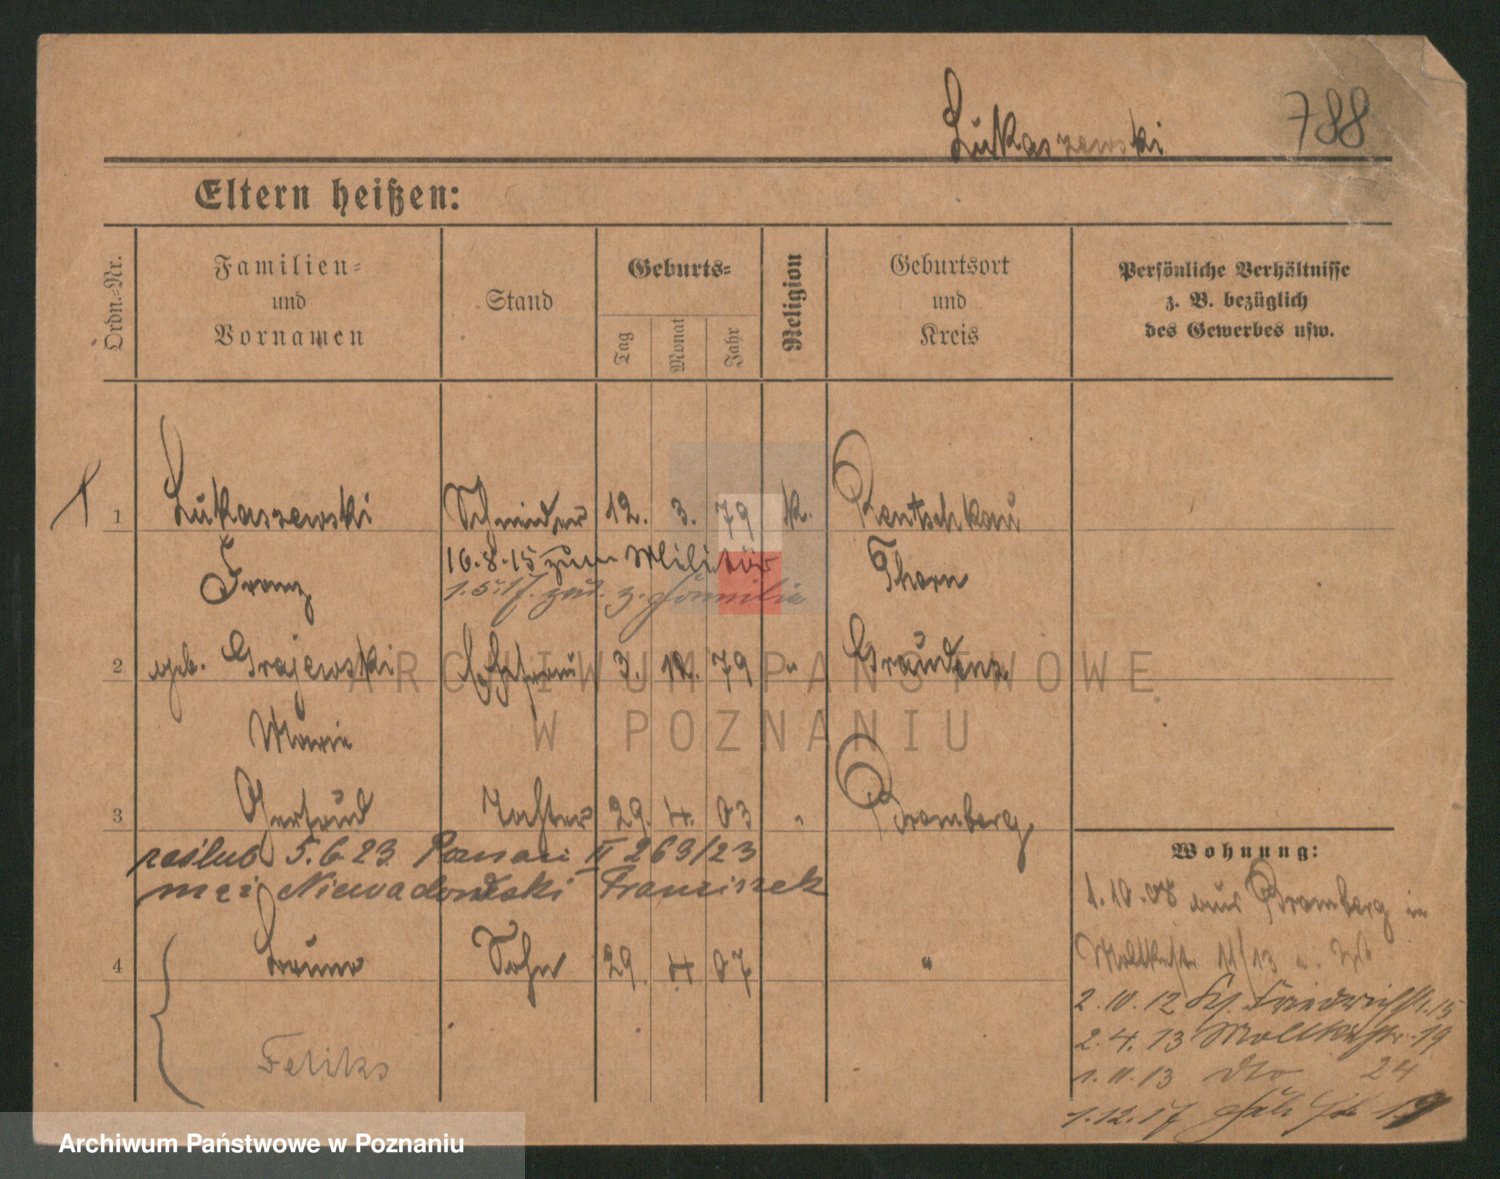 Lukaszewski 788
Eltern heißen:
Ordn.-Nr.
Familien- und Vornamen
Stand
Geburts-
Tag Monat Jahr
Religion
Geburtsort und Kreis
Persönliche Verhältnisse
z. B. bezüglich
des Gewerbes usw.
1 Lukaszewski Schneider 12. 3. 79 k. Rentschkau
Franz 16.8.15 zum Militär Thorn
1.5.17. zur. z. Familie
2 geb. Grajewski Ehefrau 3. 12. 79 " Graudenz
Marie
3 Gertrud Tochter 29. 4. 03 " Bromberg
poślub 5.6.23 Poznań II 263/23
mąż Niewiadomski Franciszek
4 Bruno Sohn 29. 4. 07 "
Feliks
Wohnung:
1.10.08 aus Bromberg in
Moltkestr. 11/13
2.10.12 Friedrichstr. 15
2.4.13 Moltkestr. 19
1.11.13 dto 24
1.12.17 19
ARCHIWUM PAŃSTWOWE
W POZNANIU
Archiwum Państwowe w Poznaniu